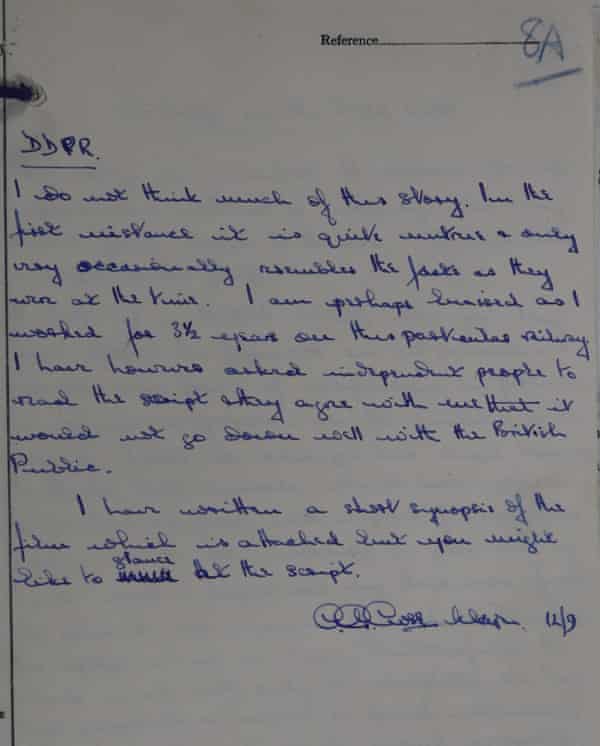 Reference
8A
DDPR.
I do not think much of this story. In the
first instance it is quite untrue & only
very occasionally resembles the facts as they
were at the time. I am perhaps biaised as I
worked for 3½ years on this particular railway
I have however asked independent people to
read the script & they agree with me that it
would not go down well with the British
Public.
I have written a short synopsis of the
film which is attached but you might
like to glance at the script.
Major. 12/9